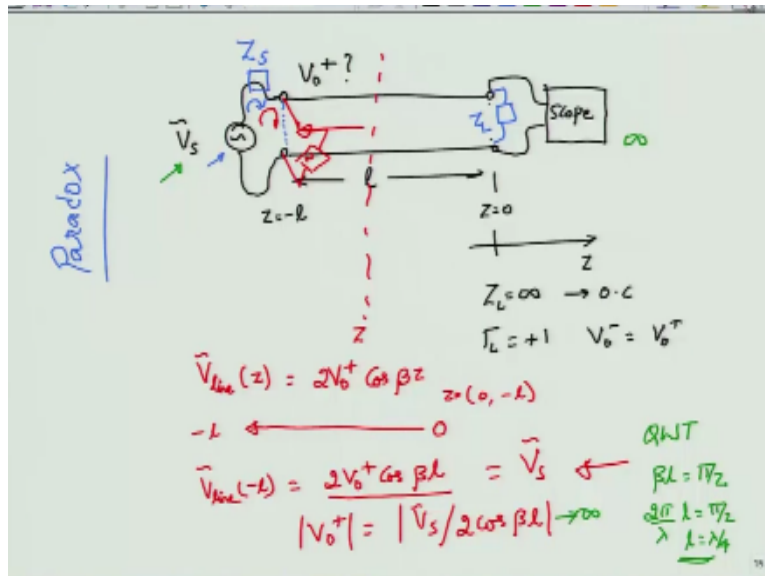 Z_S
V_0^+ ?
Ṽ_S
Z_L
Scope
∞
l
z=-l
z=0
z
Paradox
Z_L=∞ → O.C
Γ_L = +1 V_0^- = V_0^+
z
Ṽ_line(z) = 2V_0^+ Cos βz
z=(0, -l)
-l ← 0
Ṽ_line(-l) = 2V_0^+ Cos βl = Ṽ_S ←
|V_0^+| = |Ṽ_S/2cos βl| → ∞
QWT
βl = π/2
2π/λ l = π/2
l = λ/4